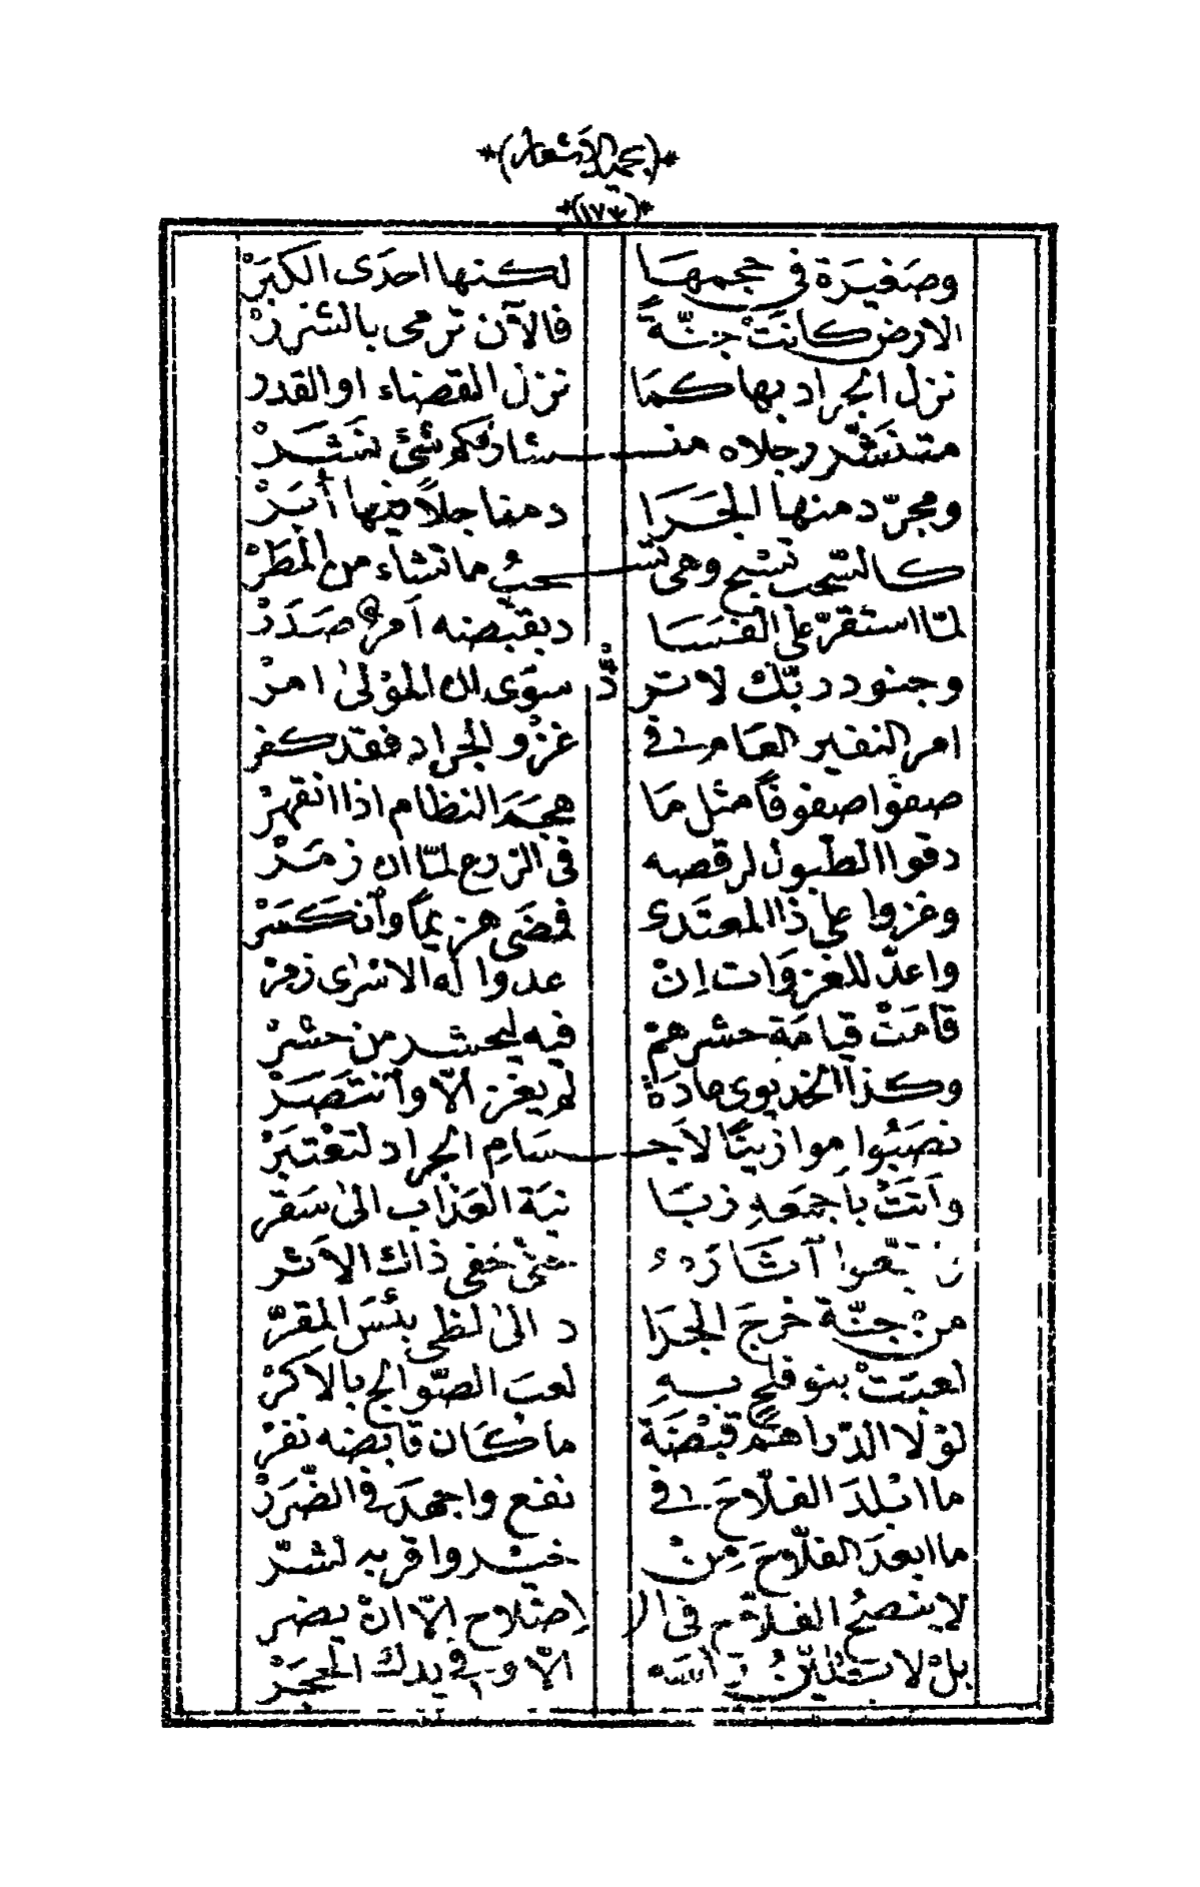 *(بحمد الاشعار)*
*(١٧٣)*
وصَغيَرة في حجمهَا لكنها احدَى الكبَرْ
الارض كانتْ جنّةً فالآن ترمى بالشررْ
نزل الجراد بها كمَا نزل القضاء او القدر
رجلاه منـشار فكم شئ نشَرْ
ومجرّد منها الجَرَا د منا جلاً فيها أبَرْ
كالسّحب تسْبح وهى تسْـحبُ ما تشاء من المطَرْ
لمّا استقرّ على الفسَا د بقبضه امرٌ صَدَرْ
وجنود ربّك لا ترُدّ سوَى ان المؤلىٰ امرْ
امر النفير العَام في غزْو الجراد فقد كفر
صفوا صفوفًا مثل مَا هجمَ النظام اذا انقهرْ
دقوا الطبول لرقصه في الزرع لمّا ان زمَرْ
وغزوا على ذا المعتَدى فمضَى هزيمًا وأنكسَرْ
واعدّ للغزوَات اِنْ عدوا له الاسْرٰى زمرْ
قامَتْ قيامَة حشرهمْ فيه ليحشر من حشرْ
وكذا الخديوى مادَةً لمْ يغز الاّ وأنتَصَرْ
نصَبُوا موازينًا لاَجـسَامِ الجراد لتعْتبَرْ
وَاَتتْ باَجمَعهِ زبَا نيَة العَذاب الىٰ سَقرْ
آثارَه خَفى ذاك الاَثر
منْ جنّة خرجَ الجرَا د الىٰ لظى بئسَ المقرّ
لعبَتْ بنو فلحٍ بهِ لعبَ الصّوالج بالاكرْ
لوْلا الدّراهمُ قبْضَةً ما كان قابضه نفرْ
ما ابْلدَ الفلّاحَ في نفع واجهدَ في الضّررْ
ما ابعدَ الفلّاحَ مِنْ خير واقربه لشرّ
لا ينصلح الفلاّح في الـ اِصْلاح اِلاّ انْ يضر
بلْ لا الاّ وفى يدك الحجَرْ